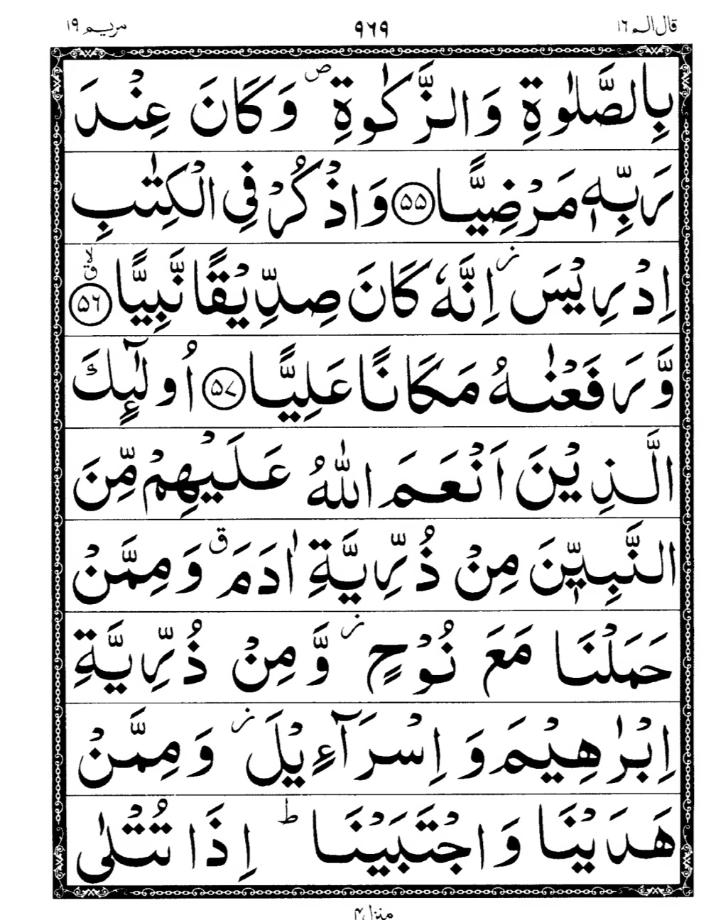 قال الم ١٦ ٩٦٩ مريم ١٩
بِالصَّلٰوةِ وَالزَّكٰوةِ ۪ وَكَانَ عِنْدَ
رَبِّهٖ مَرْضِيًّا ﴿۵۵﴾ وَاذْكُرْ فِي الْكِتٰبِ
اِدْرِيْسَ ۫ اِنَّهٗ كَانَ صِدِّيْقًا نَّبِيًّا ﴿۵۶﴾ ۙق
وَّرَفَعْنٰهُ مَكَانًا عَلِيًّا ﴿۵۷﴾ اُولٰٓئِكَ
الَّذِيْنَ اَنْعَمَ اللّٰهُ عَلَيْهِمْ مِّنَ
النَّبِيّٖنَ مِنْ ذُرِّيَّةِ اٰدَمَ ق وَمِمَّنْ
حَمَلْنَا مَعَ نُوْحٍ ۫ وَّمِنْ ذُرِّيَّةِ
اِبْرٰهِيْمَ وَاِسْرَآءِيْلَ ۫ وَمِمَّنْ
هَدَيْنَا وَاجْتَبَيْنَا ؕ اِذَا تُتْلٰى
منزل ۴